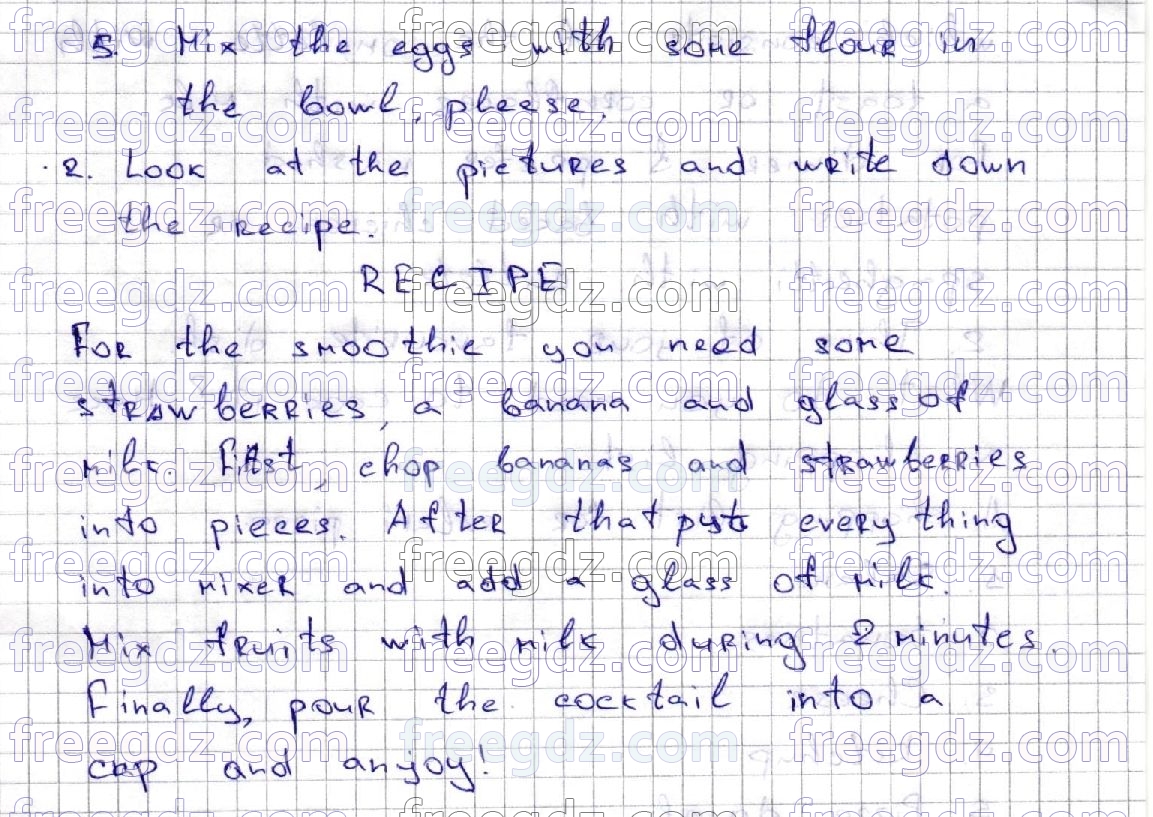 5. Mix the eggs with some flour in
the bowl, pleese.
2. Look at the pictures and write down
the recipe.
RECIPE
For the smoothie you need some
strawberries, a banana and glass of
milk. First, chop bananas and strawberries
into pieces. After that put everything
into mixer and add a glass of milk.
Mix fruits with milk during 2 minutes.
Finally, pour the cocktail into a
cap and anjoy!
freegdz.com